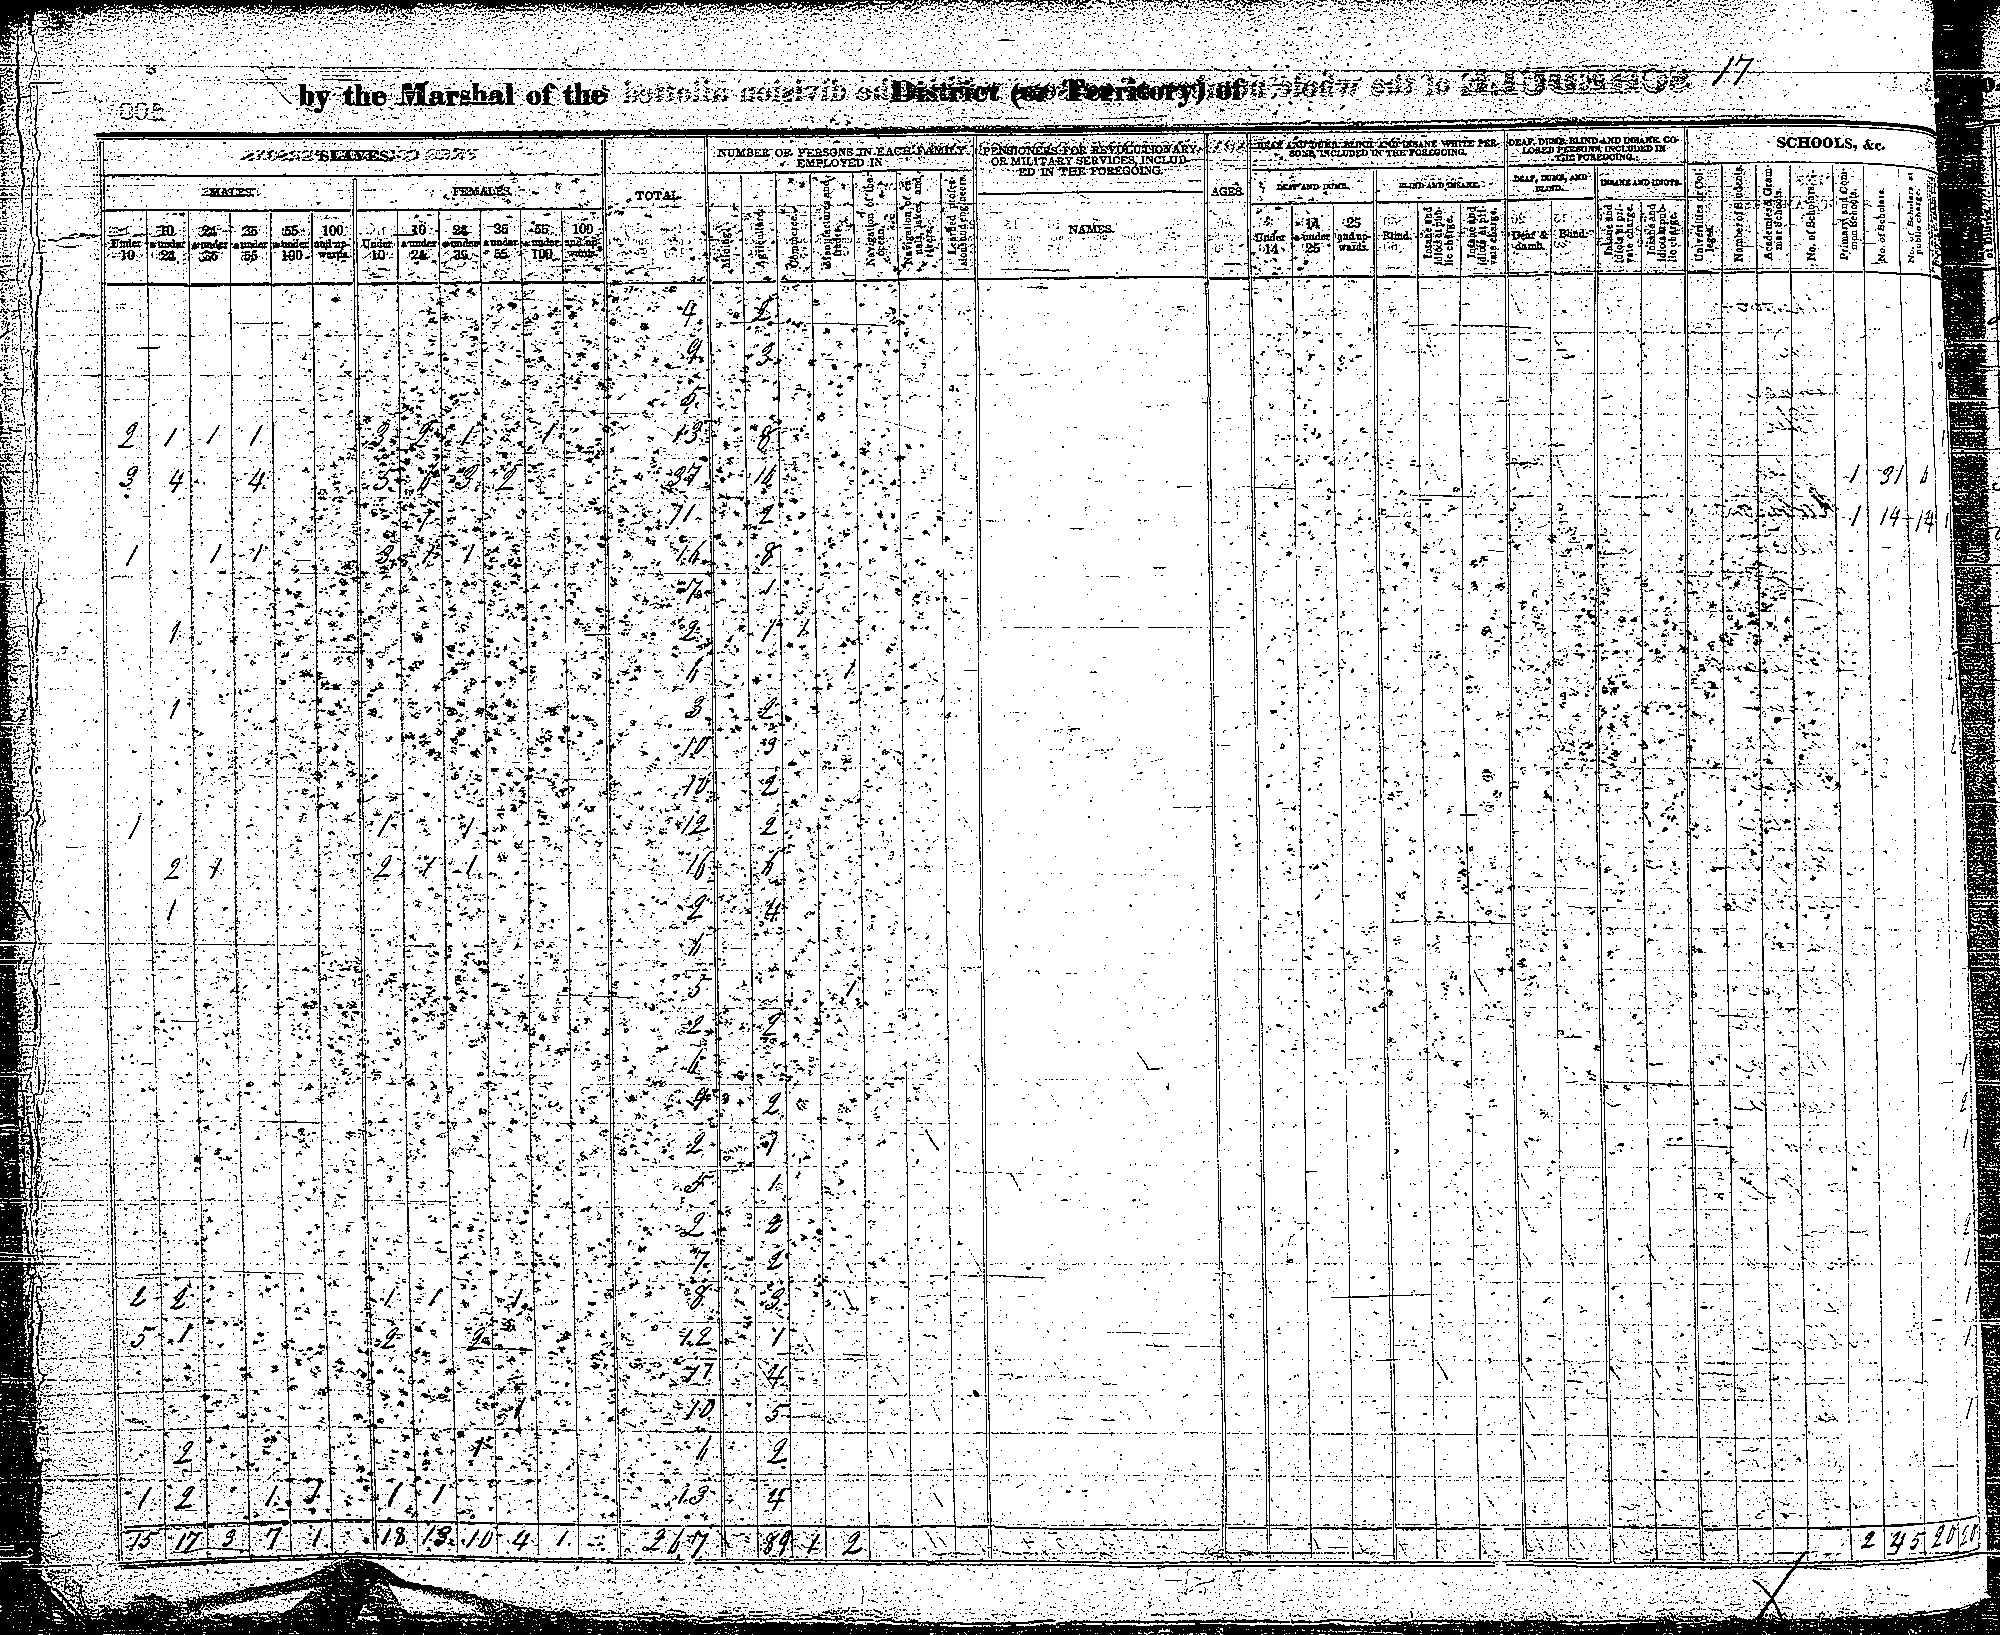 17
by the Marshal of the District (or Territory) of
SLAVES.
TOTAL
NUMBER OF PERSONS IN EACH FAMILY EMPLOYED IN
PENSIONERS FOR REVOLUTIONARY OR MILITARY SERVICES, INCLUDED IN THE FOREGOING.
AGES
DEAF AND DUMB, BLIND AND INSANE WHITE PERSONS, INCLUDED IN THE FOREGOING.
DEAF, DUMB, BLIND AND INSANE COLORED PERSONS, INCLUDED IN THE FOREGOING.
SCHOOLS, &c.
MALES. FEMALES.
NAMES.
DEAF AND DUMB. BLIND AND INSANE. DEAF, DUMB, AND BLIND. INSANE AND IDIOTS.
Under 10 10 & under 24 24 & under 36 36 & under 55 55 & under 100 100 and upwards.
Under 10 10 & under 24 24 & under 36 36 & under 55 55 & under 100 100 and upwards.
Mining. Agriculture. Commerce. Manufactures and trades. Navigation of the ocean. Navigation of canals, lakes, and rivers. Learned professions and engineers.
Under 14 14 & under 25 25 and upwards. Blind. Insane and idiots at public charge. Insane and idiots at private charge.
Deaf & dumb. Blind. Insane and idiots at private charge. Insane and idiots at public charge.
Universities or Colleges. Number of Students. Academies & Grammar Schools. No. of Scholars. Primary and Common Schools. No. of Scholars. No. of Scholars at public charge.
4 2
9 3
2 1 1 1 3 2 1 1 13 8
3 4 4 5 1 3 2 37 16 1 31 6
1 11 2 1 14 14
1 1 1 3 1 1 16 8
7 1
1 2 1 1
6 1
1 3 2
10 3
10 2
1 1 1 12 2
2 1 2 1 1 16 6
1 2 4
5 1
2 2
6
9 2
2 1
5 1
2 2
7 2
2 2 1 1 1 8 3
5 1 2 2 12 1
11 4
1 10 5
2 1 6 2
1 2 1 1 1 1 13 4
15 17 3 7 1 18 13 10 4 1 267 89 1 2 2 45 20